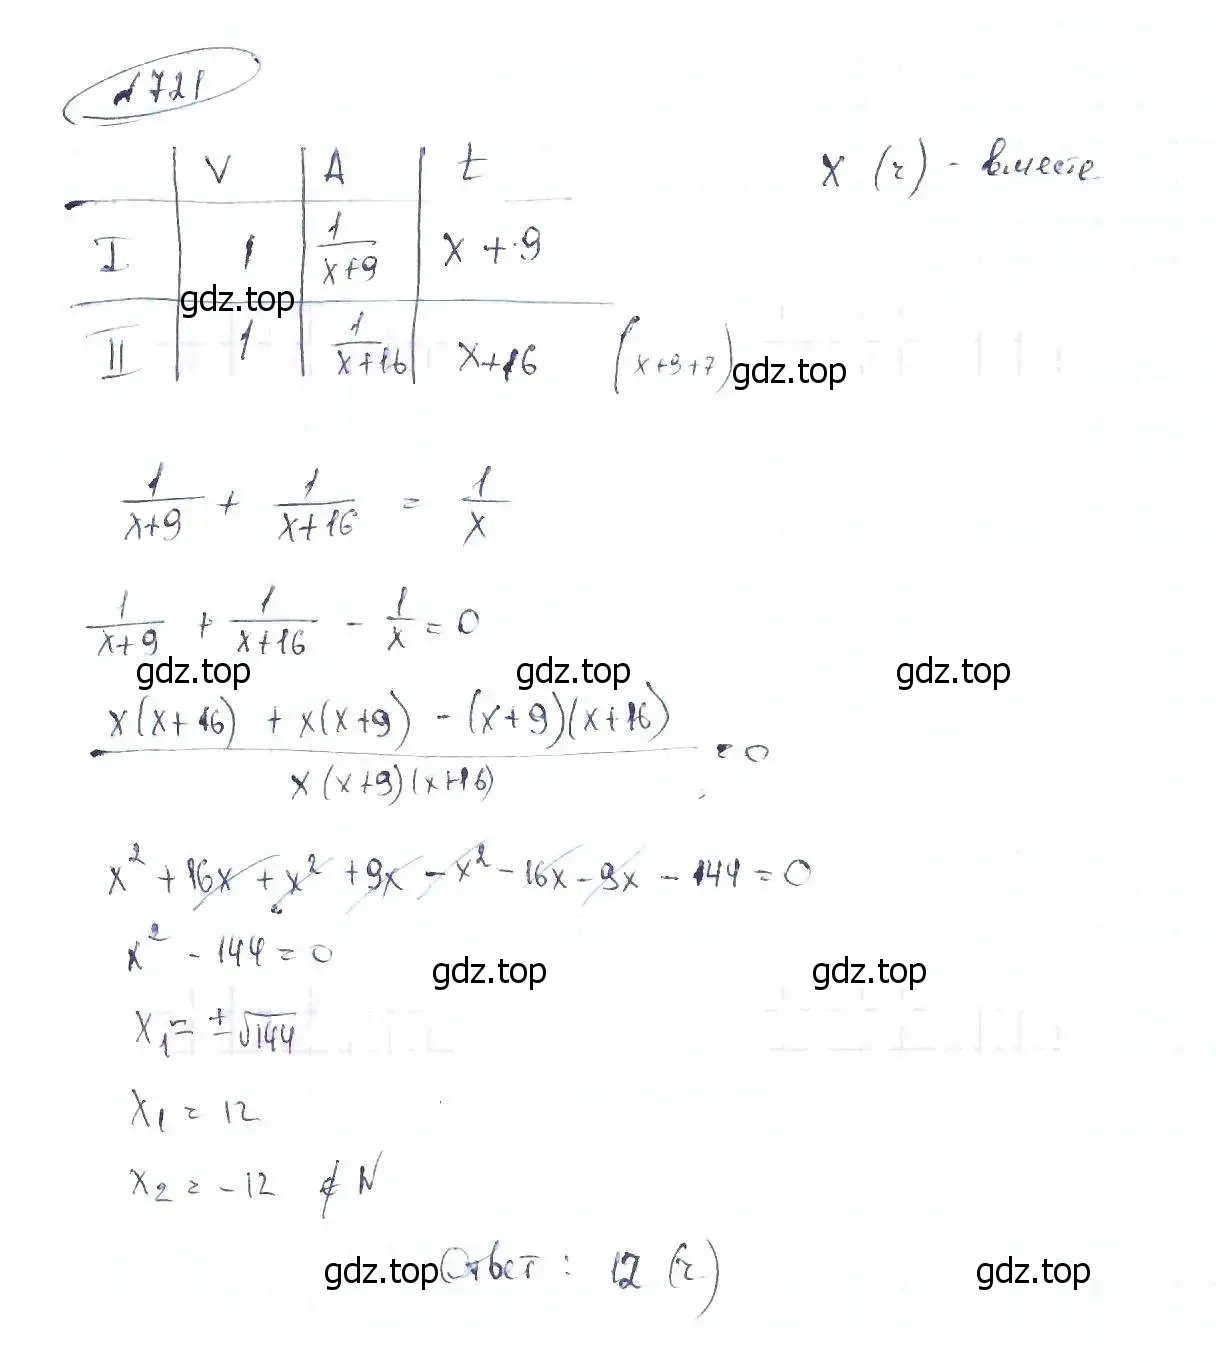 №721
V A t
x (ч) - вместе
I 1 1/(x+9) x + 9
gdz.top
II 1 1/(x+16) x+16 (x+9+7) gdz.top
1/(x+9) + 1/(x+16) = 1/x
1/(x+9) + 1/(x+16) - 1/x = 0
gdz.top gdz.top gdz.top
(x(x+16) + x(x+9) - (x+9)(x+16))/(x(x+9)(x+16)) = 0
x² + 16x + x² + 9x - x² - 16x - 9x - 144 = 0
x² - 144 = 0
gdz.top gdz.top
x₁ = ±√144
x₁ = 12
x₂ = -12 ∉ N
gdz.top Ответ: 12 (ч) gdz.top